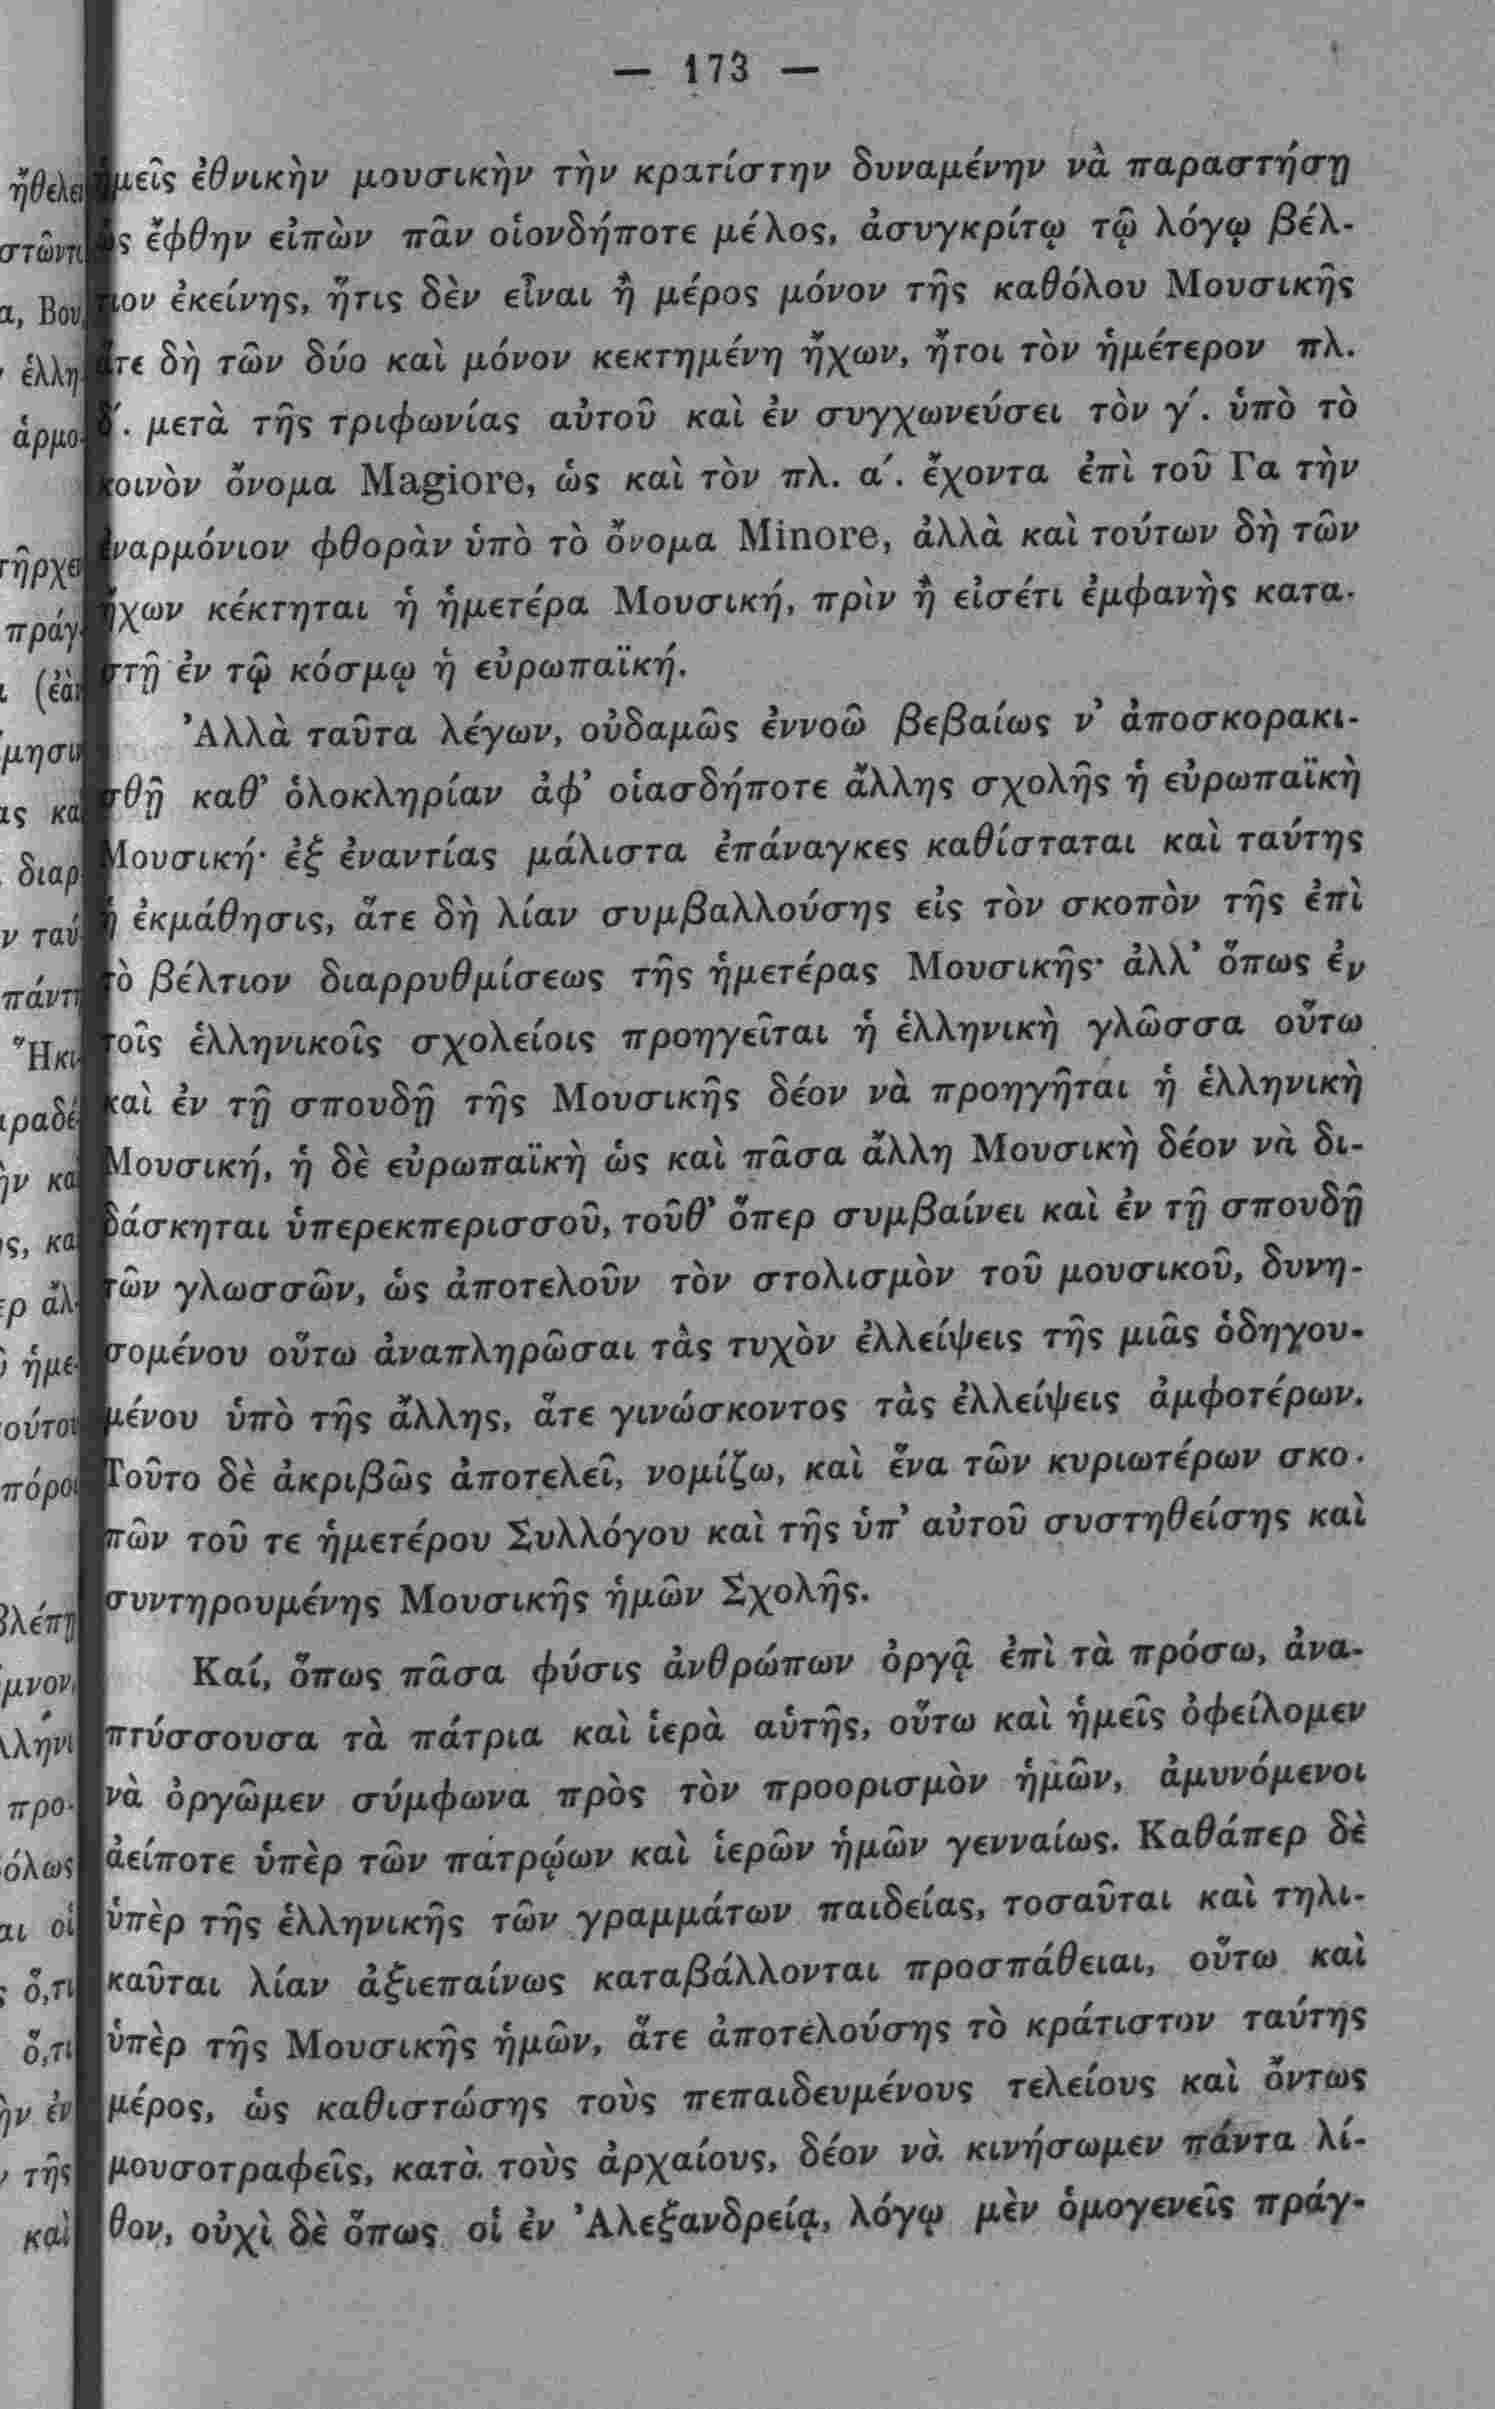 — 173 —
ἡμεῖς ἐθνικὴν μουσικὴν τὴν κρατίστην δυναμένην νὰ παραστήσῃ
ὡς ἔφθην εἰπὼν πᾶν οἱονδήποτε μέλος, ἀσυγκρίτῳ τῷ λόγῳ βέλ-
τιον ἐκείνης, ἥτις δὲν εἶναι ἢ μέρος μόνον τῆς καθόλου Μουσικῆς
ἅτε δὴ τῶν δύο καὶ μόνον κεκτημένη ἤχων, ἤτοι τὸν ἡμέτερον πλ.
δ΄. μετὰ τῆς τριφωνίας αὐτοῦ καὶ ἐν συγχωνεύσει τὸν γ΄. ὑπὸ τὸ
κοινὸν ὄνομα Magiore, ὡς καὶ τὸν πλ. α΄. ἔχοντα ἐπὶ τοῦ Γα τὴν
ἐναρμόνιον φθορὰν ὑπὸ τὸ ὄνομα Minore, ἀλλὰ καὶ τούτων δὴ τῶν
ἤχων κέκτηται ἡ ἡμετέρα Μουσική, πρὶν ἢ εἰσέτι ἐμφανὴς κατα-
στῇ ἐν τῷ κόσμῳ ἡ εὐρωπαϊκή.
Ἀλλὰ ταῦτα λέγων, οὐδαμῶς ἐννοῶ βεβαίως ν' ἀποσκορακι-
σθῇ καθ' ὁλοκληρίαν ἀφ' οἱασδήποτε ἄλλης σχολῆς ἡ εὐρωπαϊκὴ
Μουσική· ἐξ ἐναντίας μάλιστα ἐπάναγκες καθίσταται καὶ ταύτης
ἡ ἐκμάθησις, ἅτε δὴ λίαν συμβαλλούσης εἰς τὸν σκοπὸν τῆς ἐπὶ
τὸ βέλτιον διαρρυθμίσεως τῆς ἡμετέρας Μουσικῆς· ἀλλ' ὅπως ἐν
τοῖς ἑλληνικοῖς σχολείοις προηγεῖται ἡ ἑλληνικὴ γλῶσσα οὕτω
καὶ ἐν τῇ σπουδῇ τῆς Μουσικῆς δέον νὰ προηγῆται ἡ ἑλληνικὴ
Μουσική, ἡ δὲ εὐρωπαϊκὴ ὡς καὶ πᾶσα ἄλλη Μουσικὴ δέον νὰ δι-
δάσκηται ὑπερεκπερισσοῦ, τοῦθ' ὅπερ συμβαίνει καὶ ἐν τῇ σπουδῇ
τῶν γλωσσῶν, ὡς ἀποτελοῦν τὸν στολισμὸν τοῦ μουσικοῦ, δυνη-
σομένου οὕτω ἀναπληρῶσαι τὰς τυχὸν ἐλλείψεις τῆς μιᾶς ὁδηγου-
μένου ὑπὸ τῆς ἄλλης, ἅτε γινώσκοντος τὰς ἐλλείψεις ἀμφοτέρων.
Τοῦτο δὲ ἀκριβῶς ἀποτελεῖ, νομίζω, καὶ ἕνα τῶν κυριωτέρων σκο-
πῶν τοῦ τε ἡμετέρου Συλλόγου καὶ τῆς ὑπ' αὐτοῦ συστηθείσης καὶ
συντηρουμένης Μουσικῆς ἡμῶν Σχολῆς.
Καί, ὅπως πᾶσα φύσις ἀνθρώπων ὀργᾷ ἐπὶ τὰ πρόσω, ἀνα-
πτύσσουσα τὰ πάτρια καὶ ἱερὰ αὑτῆς, οὕτω καὶ ἡμεῖς ὀφείλομεν
νὰ ὀργῶμεν σύμφωνα πρὸς τὸν προορισμὸν ἡμῶν, ἀμυνόμενοι
ἀείποτε ὑπὲρ τῶν πατρῴων καὶ ἱερῶν ἡμῶν γενναίως. Καθάπερ δὲ
ὑπὲρ τῆς ἑλληνικῆς τῶν γραμμάτων παιδείας, τοσαῦται καὶ τηλι-
καῦται λίαν ἀξιεπαίνως καταβάλλονται προσπάθειαι, οὕτω καὶ
ὑπὲρ τῆς Μουσικῆς ἡμῶν, ἅτε ἀποτελούσης τὸ κράτιστον ταύτης
μέρος, ὡς καθιστώσης τοὺς πεπαιδευμένους τελείους καὶ ὄντως
μουσοτραφεῖς, κατὰ τοὺς ἀρχαίους, δέον νὰ κινήσωμεν πάντα λί-
θον, οὐχὶ δὲ ὅπως οἱ ἐν Ἀλεξανδρείᾳ, λόγῳ μὲν ὁμογενεῖς πράγ-